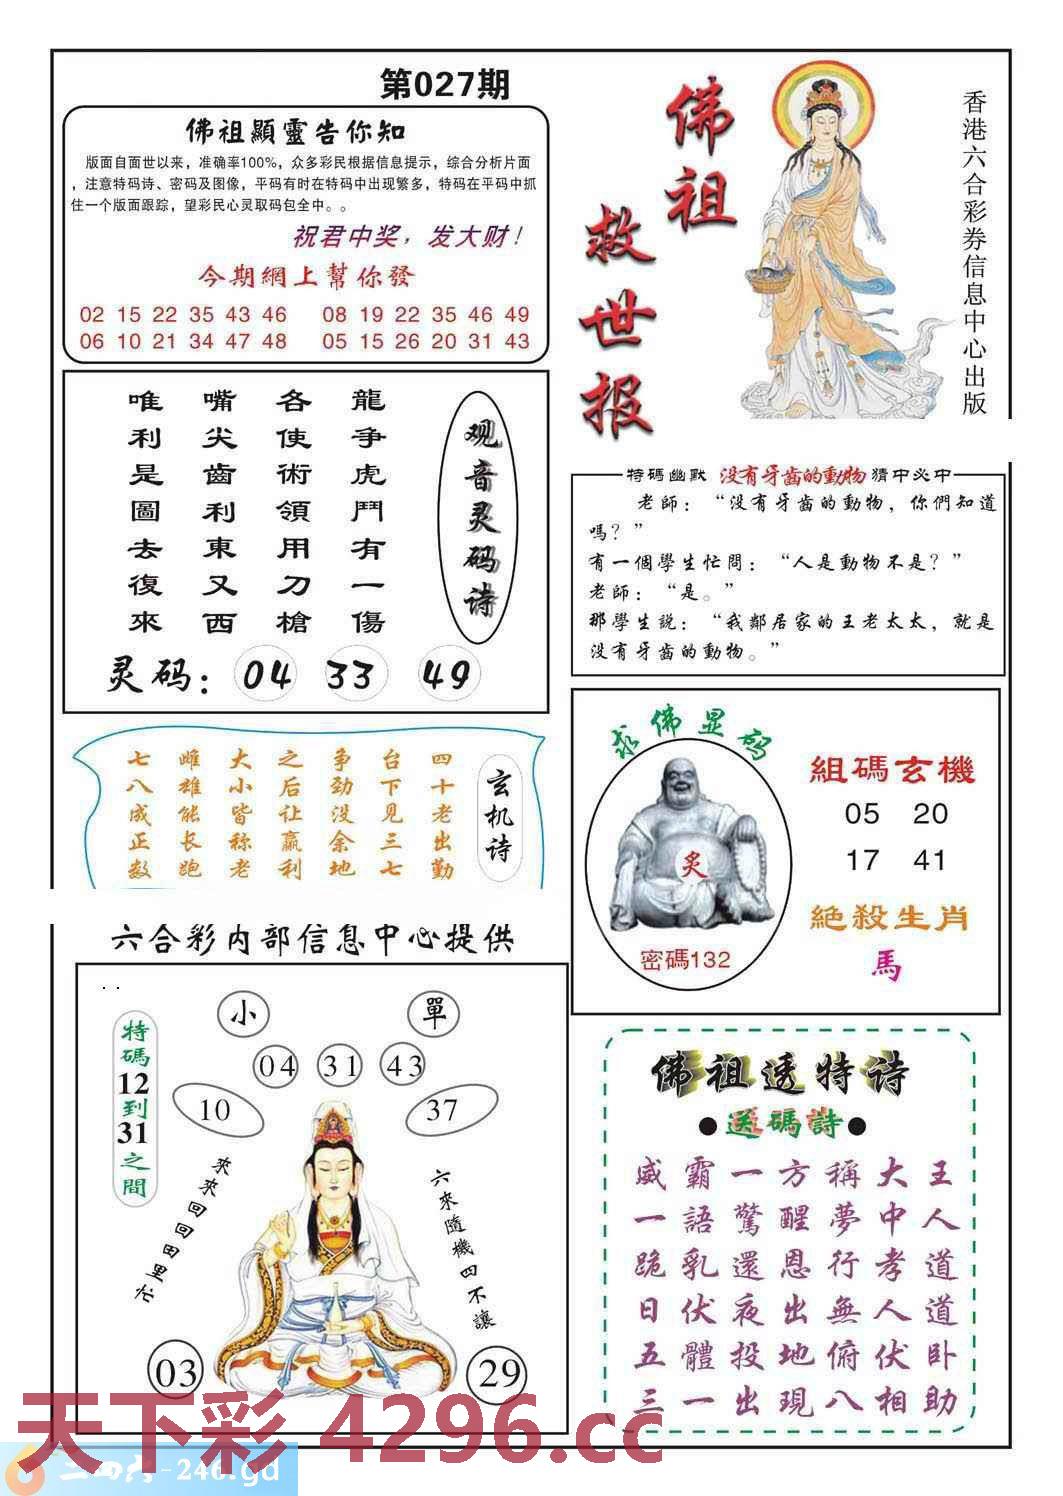 第027期
佛祖顯靈告你知
版面自面世以来，准确率100%，众多彩民根据信息提示，综合分析片面
，注意特码诗、密码及图像，平码有时在特码中出现繁多，特码在平码中抓
住一个版面跟踪，望彩民心灵取码包全中。。
祝君中奖，发大财！
今期網上幫你發
02 15 22 35 43 46
08 19 22 35 46 49
06 10 21 34 47 48
05 15 26 20 31 43
佛祖
救世报
香港六合彩券信息中心出版
观音灵码诗
龍争虎鬥有一傷
各使術領用刀槍
嘴尖齒利東又西
唯利是圖去復來
灵码：04 33 49
特碼幽默 没有牙齒的動物 猜中必中
老師：“没有牙齒的動物，你們知道
嗎？”
有一個學生忙問：“人是動物不是？”
老師：“是。”
那學生説：“我鄰居家的王老太太，就是
没有牙齒的動物。”
玄机诗
四十老出勤
台下见三七
争劲没余地
之后让赢利
大小皆称老
雌雄能长跑
七八成正数
求佛显码
炙
密碼132
組碼玄機
05 20
17 41
絕殺生肖
馬
六合彩内部信息中心提供
特碼12到31之間
小
單
04
31
43
10
37
來來回回田里忙
六來隨機四不讓
03
29
佛祖透特诗
●送碼詩●
威霸一方稱大王
一語驚醒夢中人
跪乳還恩行孝道
日伏夜出無人道
五體投地俯伏卧
三一出現八相助
天下彩 4296.cc
二四六-246.gd